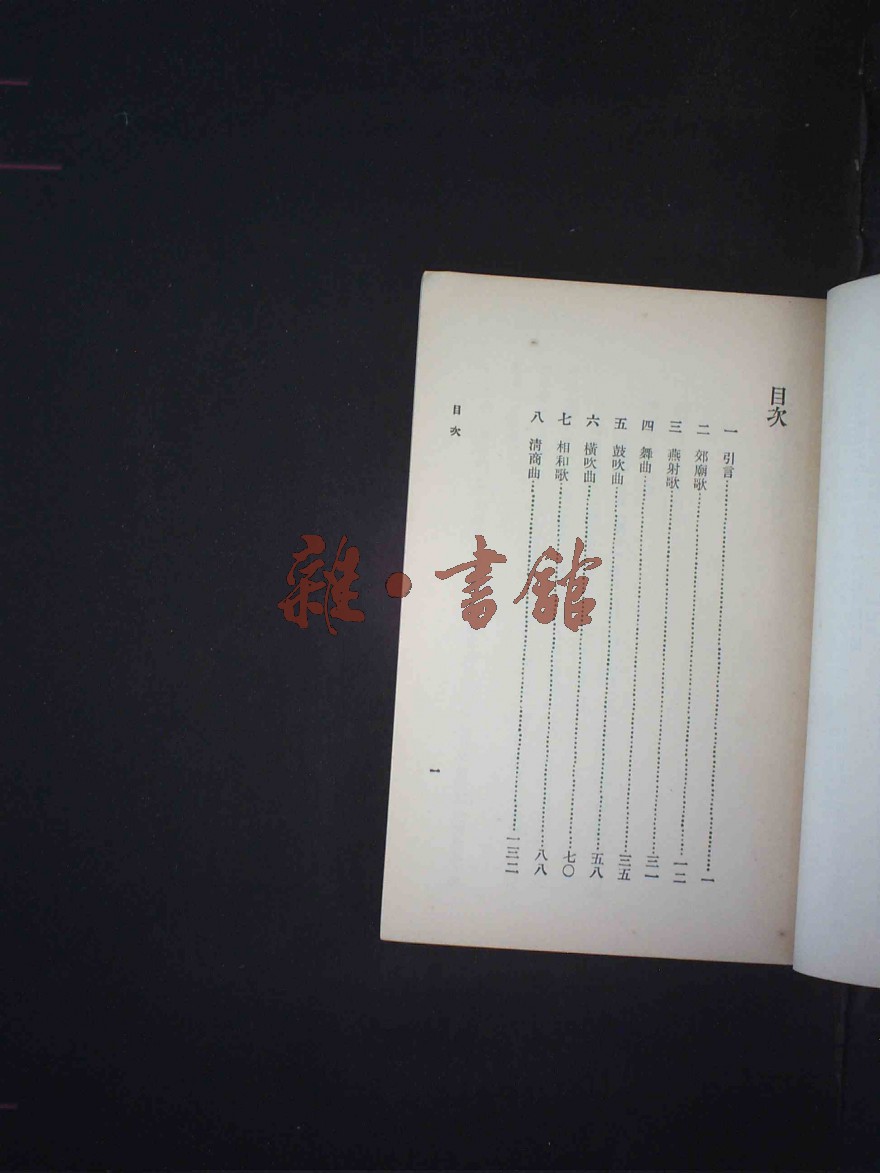 目次
一 引言……一
二 郊廟歌……一二
三 燕射歌……三一
四 舞曲……三五
五 鼓吹曲……五八
六 橫吹曲……七〇
七 相和歌……八八
八 清商曲……一三二
目次
一
雜·書館